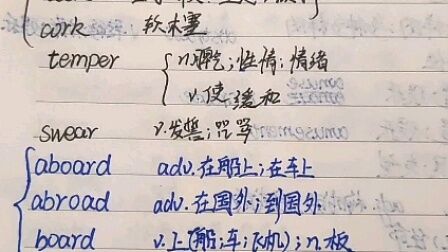 cork 软木塞
temper n.脾气;性情;情绪
v.使缓和
swear v.发誓;咒骂
aboard adv.在船上;在车上
abroad adv.在国外;到国外
board v.上(船;车;飞机);n.板